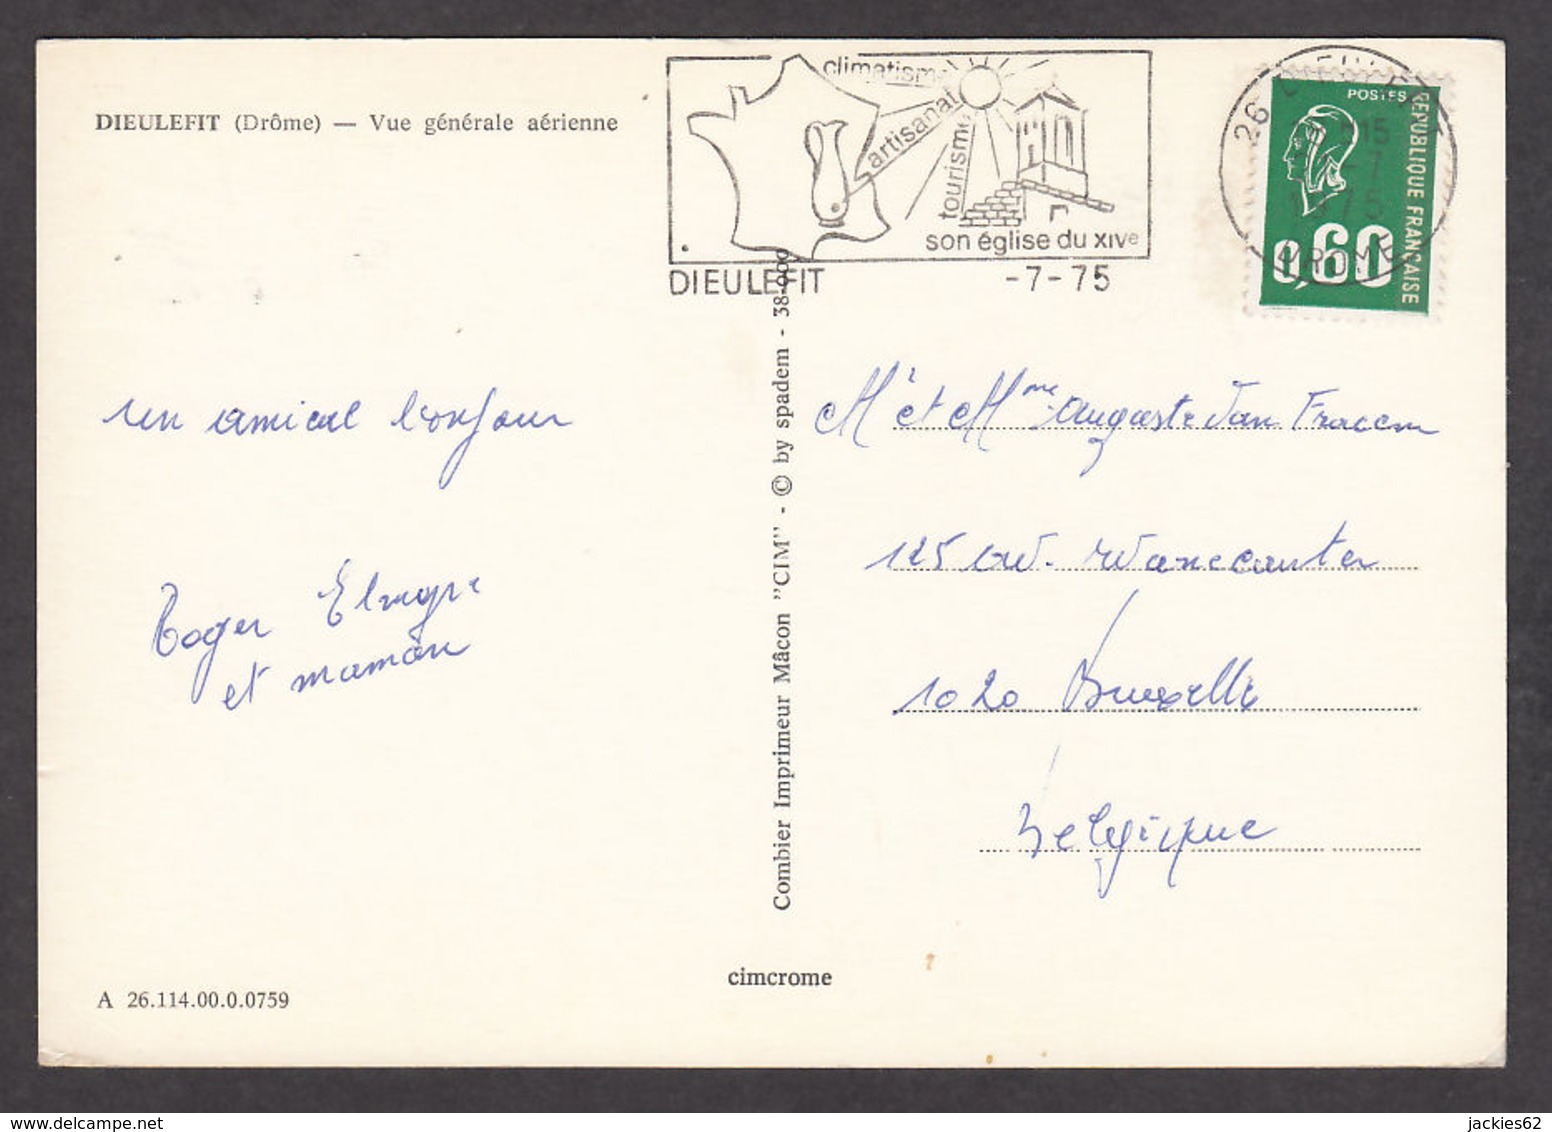 DIEULEFIT (Drôme) — Vue générale aérienne
climatisme
artisanat
tourisme
son église du XIVe
DIEULEFIT -7-75
26 DIEULEFIT
15
7
1975
DROME
POSTES
REPUBLIQUE FRANÇAISE
0,60
un amical bonjour
Roger
et maman
Mr et Mme Auguste Van
125 av.
1020 Bruxelle
Belgique
Combier Imprimeur Mâcon "CIM" - © by spadem - 38-000
cimcrome
A 26.114.00.0.0759
jackies62